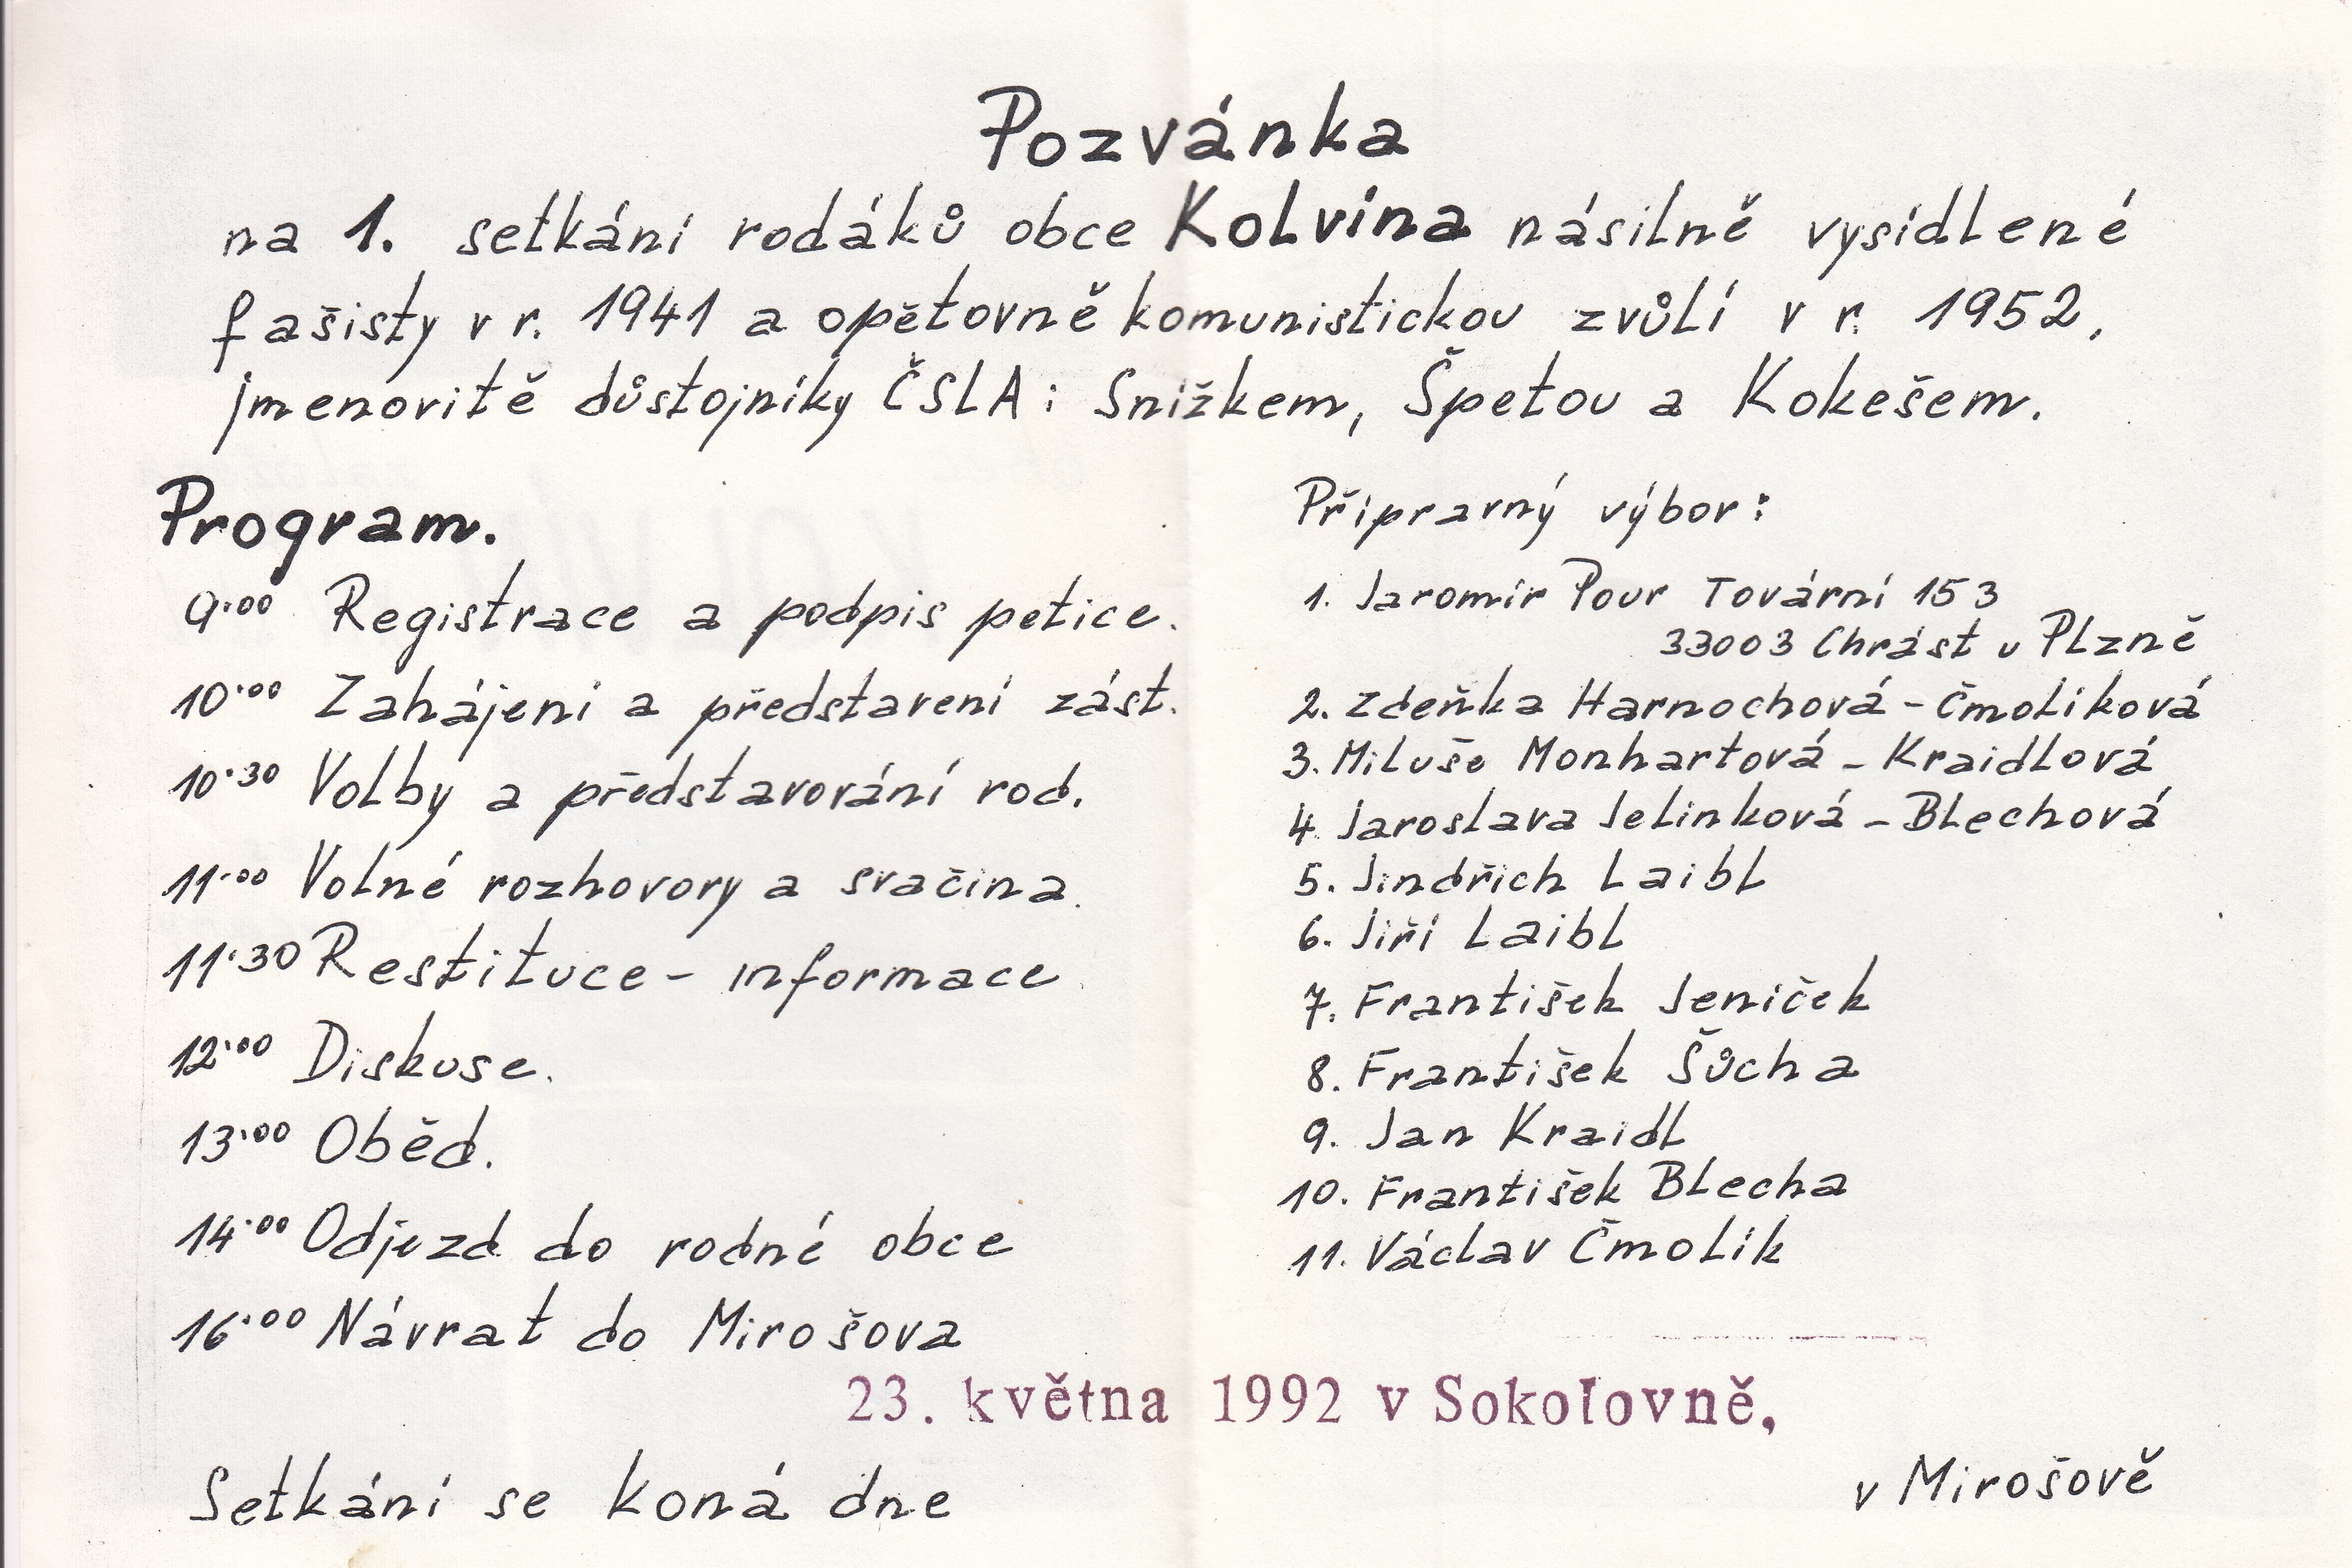 Pozvánka
na 1. setkání rodáků obce Kolvína násilně vysídlené
fašisty v r. 1941 a opětovně komunistickou zvůlí v r. 1952,
jmenovitě důstojníky ČSLA: Snížkem, Špetou a Kokešem.
Program.
9:00 Registrace a podpis petice.
10:00 Zahájení a představení zást.
10:30 Volby a představování rod.
11:00 Volné rozhovory a svačina.
11:30 Restituce - informace
12:00 Diskuse.
13:00 Oběd.
14:00 Odjezd do rodné obce
16:00 Návrat do Mirošova
Přípravný výbor:
1. Jaromír Pour Tovární 153
33003 Chrást u Plzně
2. Zdeňka Harnochová - Čmolíková
3. Miluše Monhartová - Kraidlová
4. Jaroslava Jelínková - Blechová
5. Jindřich Laibl
6. Jiří Laibl
7. František Jeníček
8. František Šůcha
9. Jan Kraidl
10. František Blecha
11. Václav Čmolík
23. května 1992 v Sokolovně,
Setkání se koná dne v Mirošově